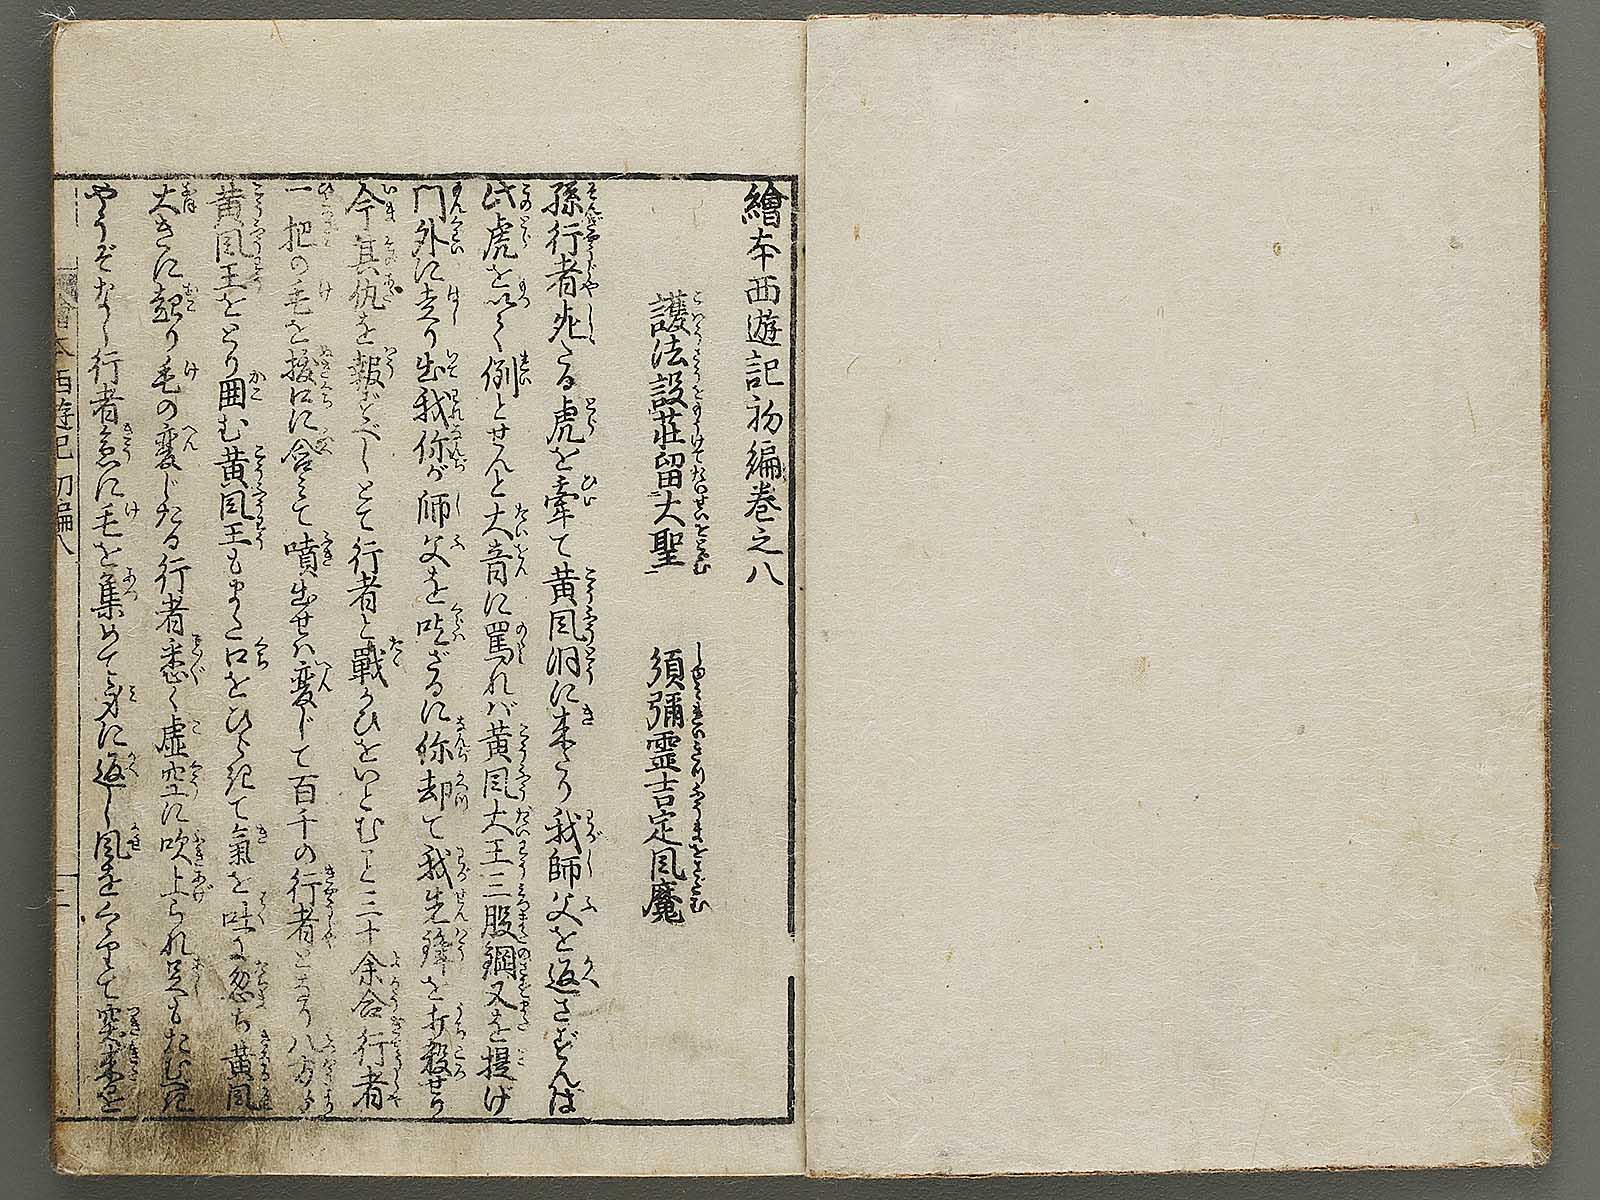 繪本西遊記初編巻之八
護法設荘留大聖　須彌霊吉定風魔
孫行者死たる虎を牽て黄風洞に来り我師父を返さずんば
此虎を以て例とせんと大音に罵れバ黄風大王三股鋼叉を提げ
門外に走り出我你が師父を吃ざるに你却て我先鋒を打殺せり
今其仇を報ずべしとて行者と戦かひをいどむこと三十余合行者
一把の毛を抜口に含て噴出せバ変じて百千の行者となり八方より
黄風王をとり囲む黄風王もまた口をひらきて氣を吐ば忽ち黄風
大きに起り毛の変じたる行者悉く虚空に吹上られ足もたむ
やうぞなし行者急に毛を集めて身に返し風をくゞりて突来を
繪本西遊記初編八